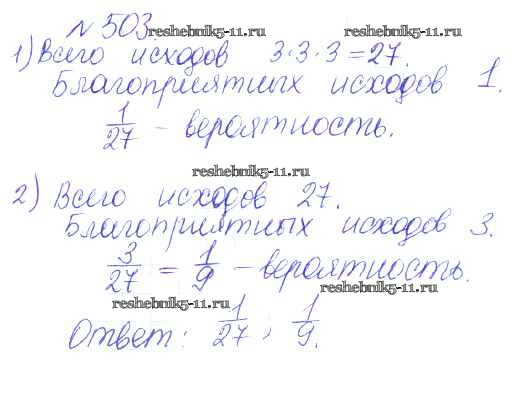 № 503.
reshebnik5-11.ru
1) Всего исходов 3·3·3=27.
reshebnik5-11.ru
Благоприятных исходов 1.
1/27 - вероятность.
reshebnik5-11.ru
2) Всего исходов 27.
Благоприятных исходов 3.
3/27 = 1/9 - вероятность.
reshebnik5-11.ru
reshebnik5-11.ru
Ответ: 1/27, 1/9.